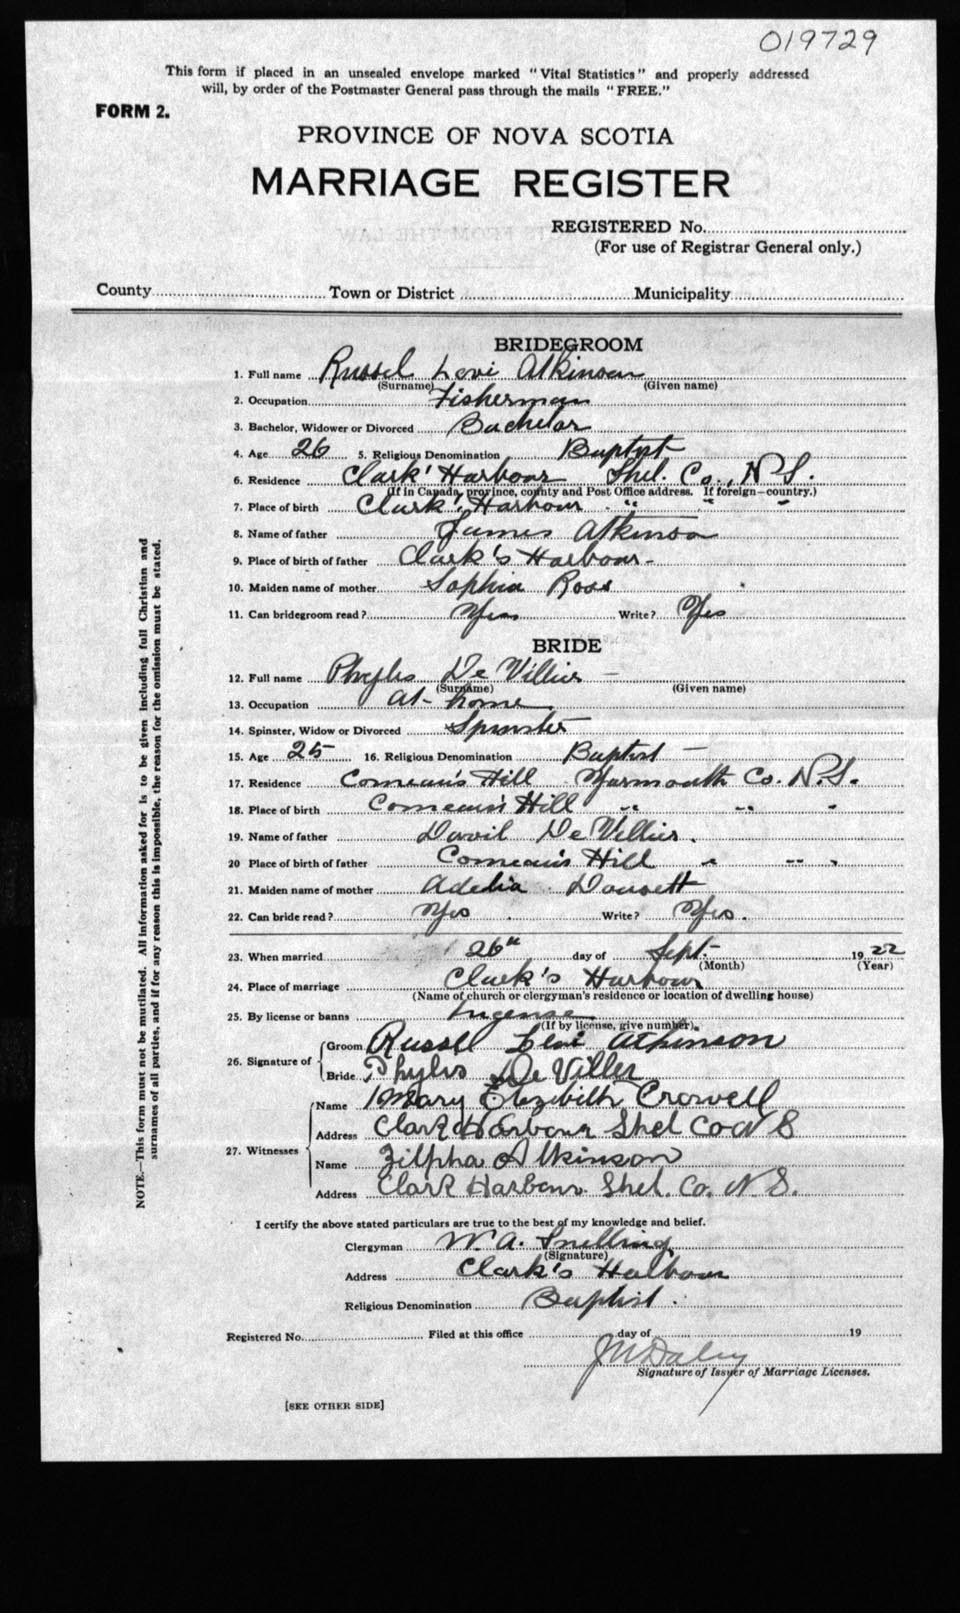 019729
This form if placed in an unsealed envelope marked "Vital Statistics" and properly addressed
will, by order of the Postmaster General pass through the mails "FREE."
FORM 2.
PROVINCE OF NOVA SCOTIA
MARRIAGE REGISTER
REGISTERED No.
(For use of Registrar General only.)
County Town or District Municipality
BRIDEGROOM
1. Full name Russel Levi Atkinson
(Surname) (Given name)
2. Occupation Fisherman
3. Bachelor, Widower or Divorced Bachelor
4. Age 26 5. Religious Denomination Baptist
6. Residence Clark' Harbour Shel. Co., N.S.
(If in Canada, province, county and Post Office address. If foreign—country.)
7. Place of birth Clark' Harbour " " "
8. Name of father James Atkinson
9. Place of birth of father Clark's Harbour -
10. Maiden name of mother Sophia Ross
11. Can bridegroom read? Yes Write? Yes
BRIDE
12. Full name Phylis De Villier -
(Surname) (Given name)
13. Occupation At-home
14. Spinster, Widow or Divorced Spinster
15. Age 25 16. Religious Denomination Baptist -
17. Residence Comeau's Hill Yarmouth Co. N.S.
18. Place of birth Comeau's Hill " " "
19. Name of father David De Villier.
20 Place of birth of father Comeau's Hill " " "
21. Maiden name of mother Adelia Doucett
22. Can bride read? Yes Write? Yes.
23. When married 26th day of Sept. 1922
(Month) (Year)
24. Place of marriage Clark's Harbour
(Name of church or clergyman's residence or location of dwelling house)
25. By license or banns
(If by license, give number).
26. Signature of Groom Russell Levi Atkinson
Bride Phylis De Viller
27. Witnesses Name Mary Elizibeth Crowell
Address Clark Harbour Shel Co N S
Name Zilpha Atkinson
Address Clark Harbour Shel. Co. N. S.
I certify the above stated particulars are true to the best of my knowledge and belief.
Clergyman W. A. Snelling
(Signature)
Address Clark's Harbour
Religious Denomination Baptist.
Registered No. Filed at this office day of 19
Daley
Signature of Issuer of Marriage Licenses.
[SEE OTHER SIDE]
NOTE.—This form must not be mutilated. All information asked for is to be given including full Christian and
surnames of all parties, and if for any reason this is impossible, the reason for the omission must be stated.